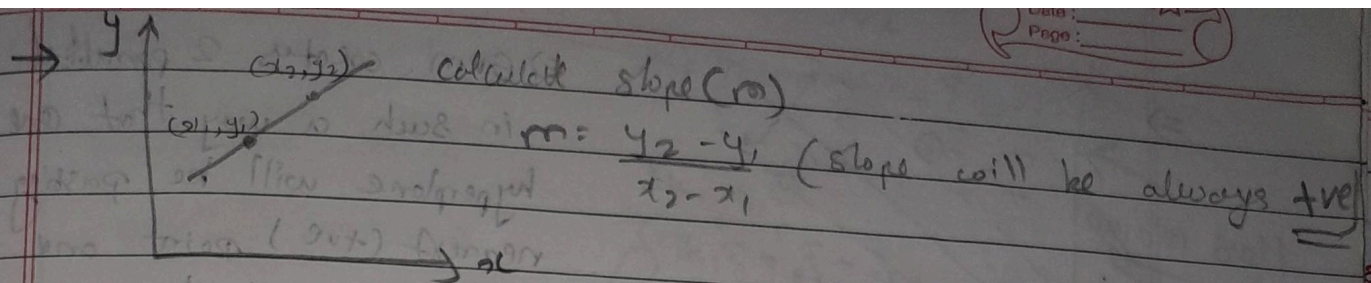 Data :
Page :
→ y
(x₂, y₂) calculate slope (m)
(x₁, y₁) m = y₂ - y₁ / x₂ - x₁ (slope will be always +ve)
x